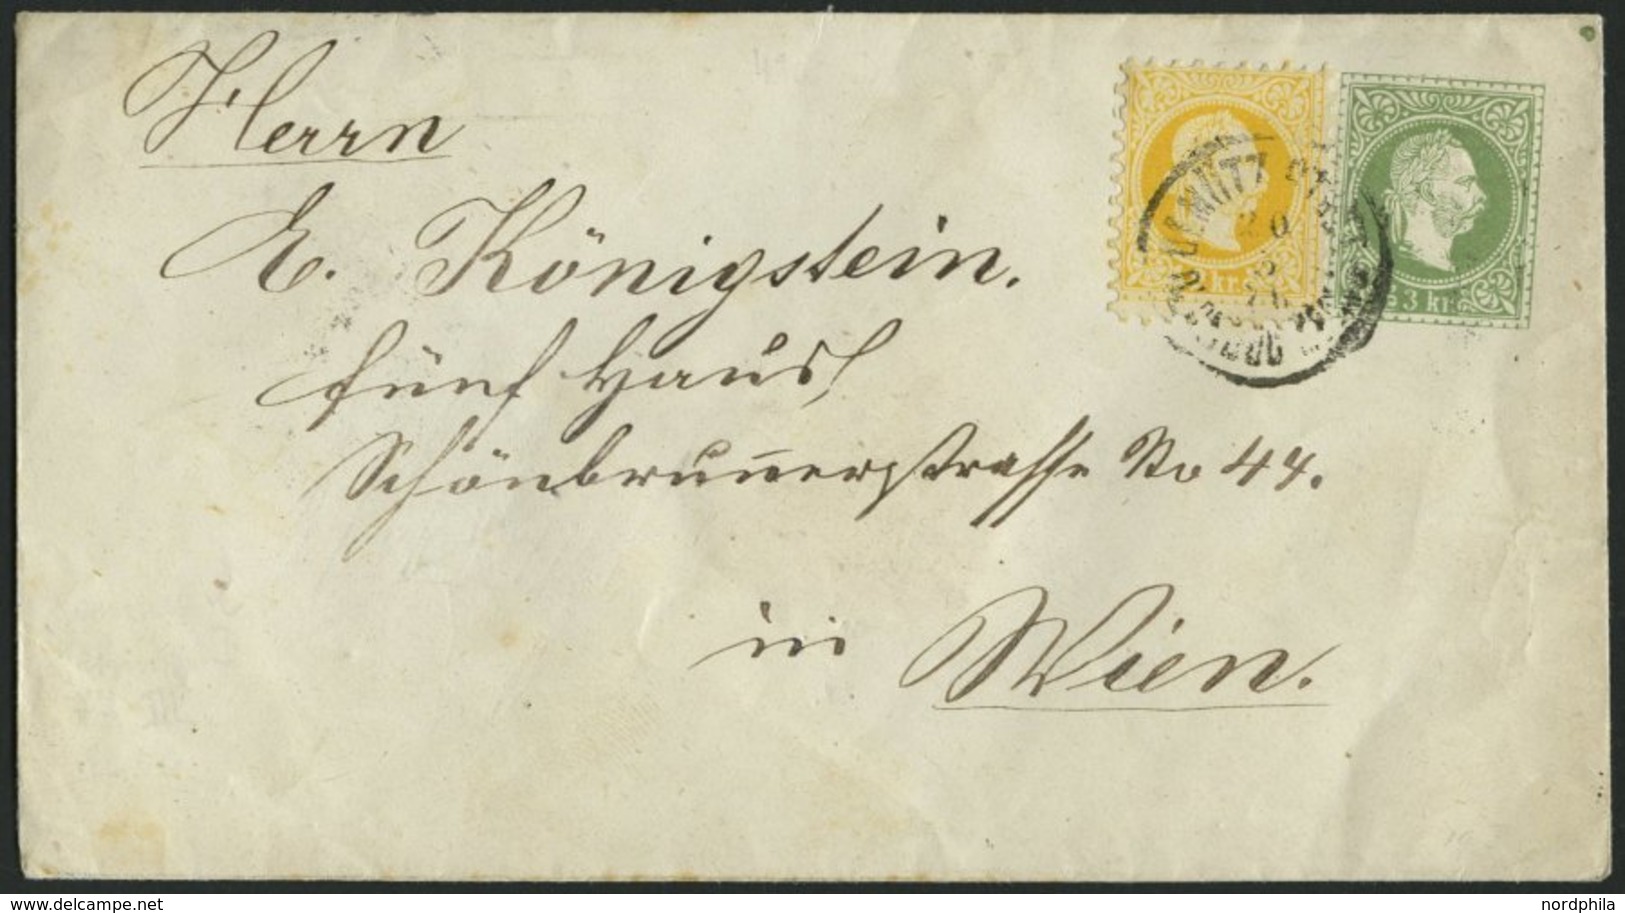 Herrn
A. Königstein.
fünf Haus,
Schönbrunnerstrasse No 44.
in Wien.
kr.
3 kr.
OLMÜTZ
20
delcampe.net
nordphila